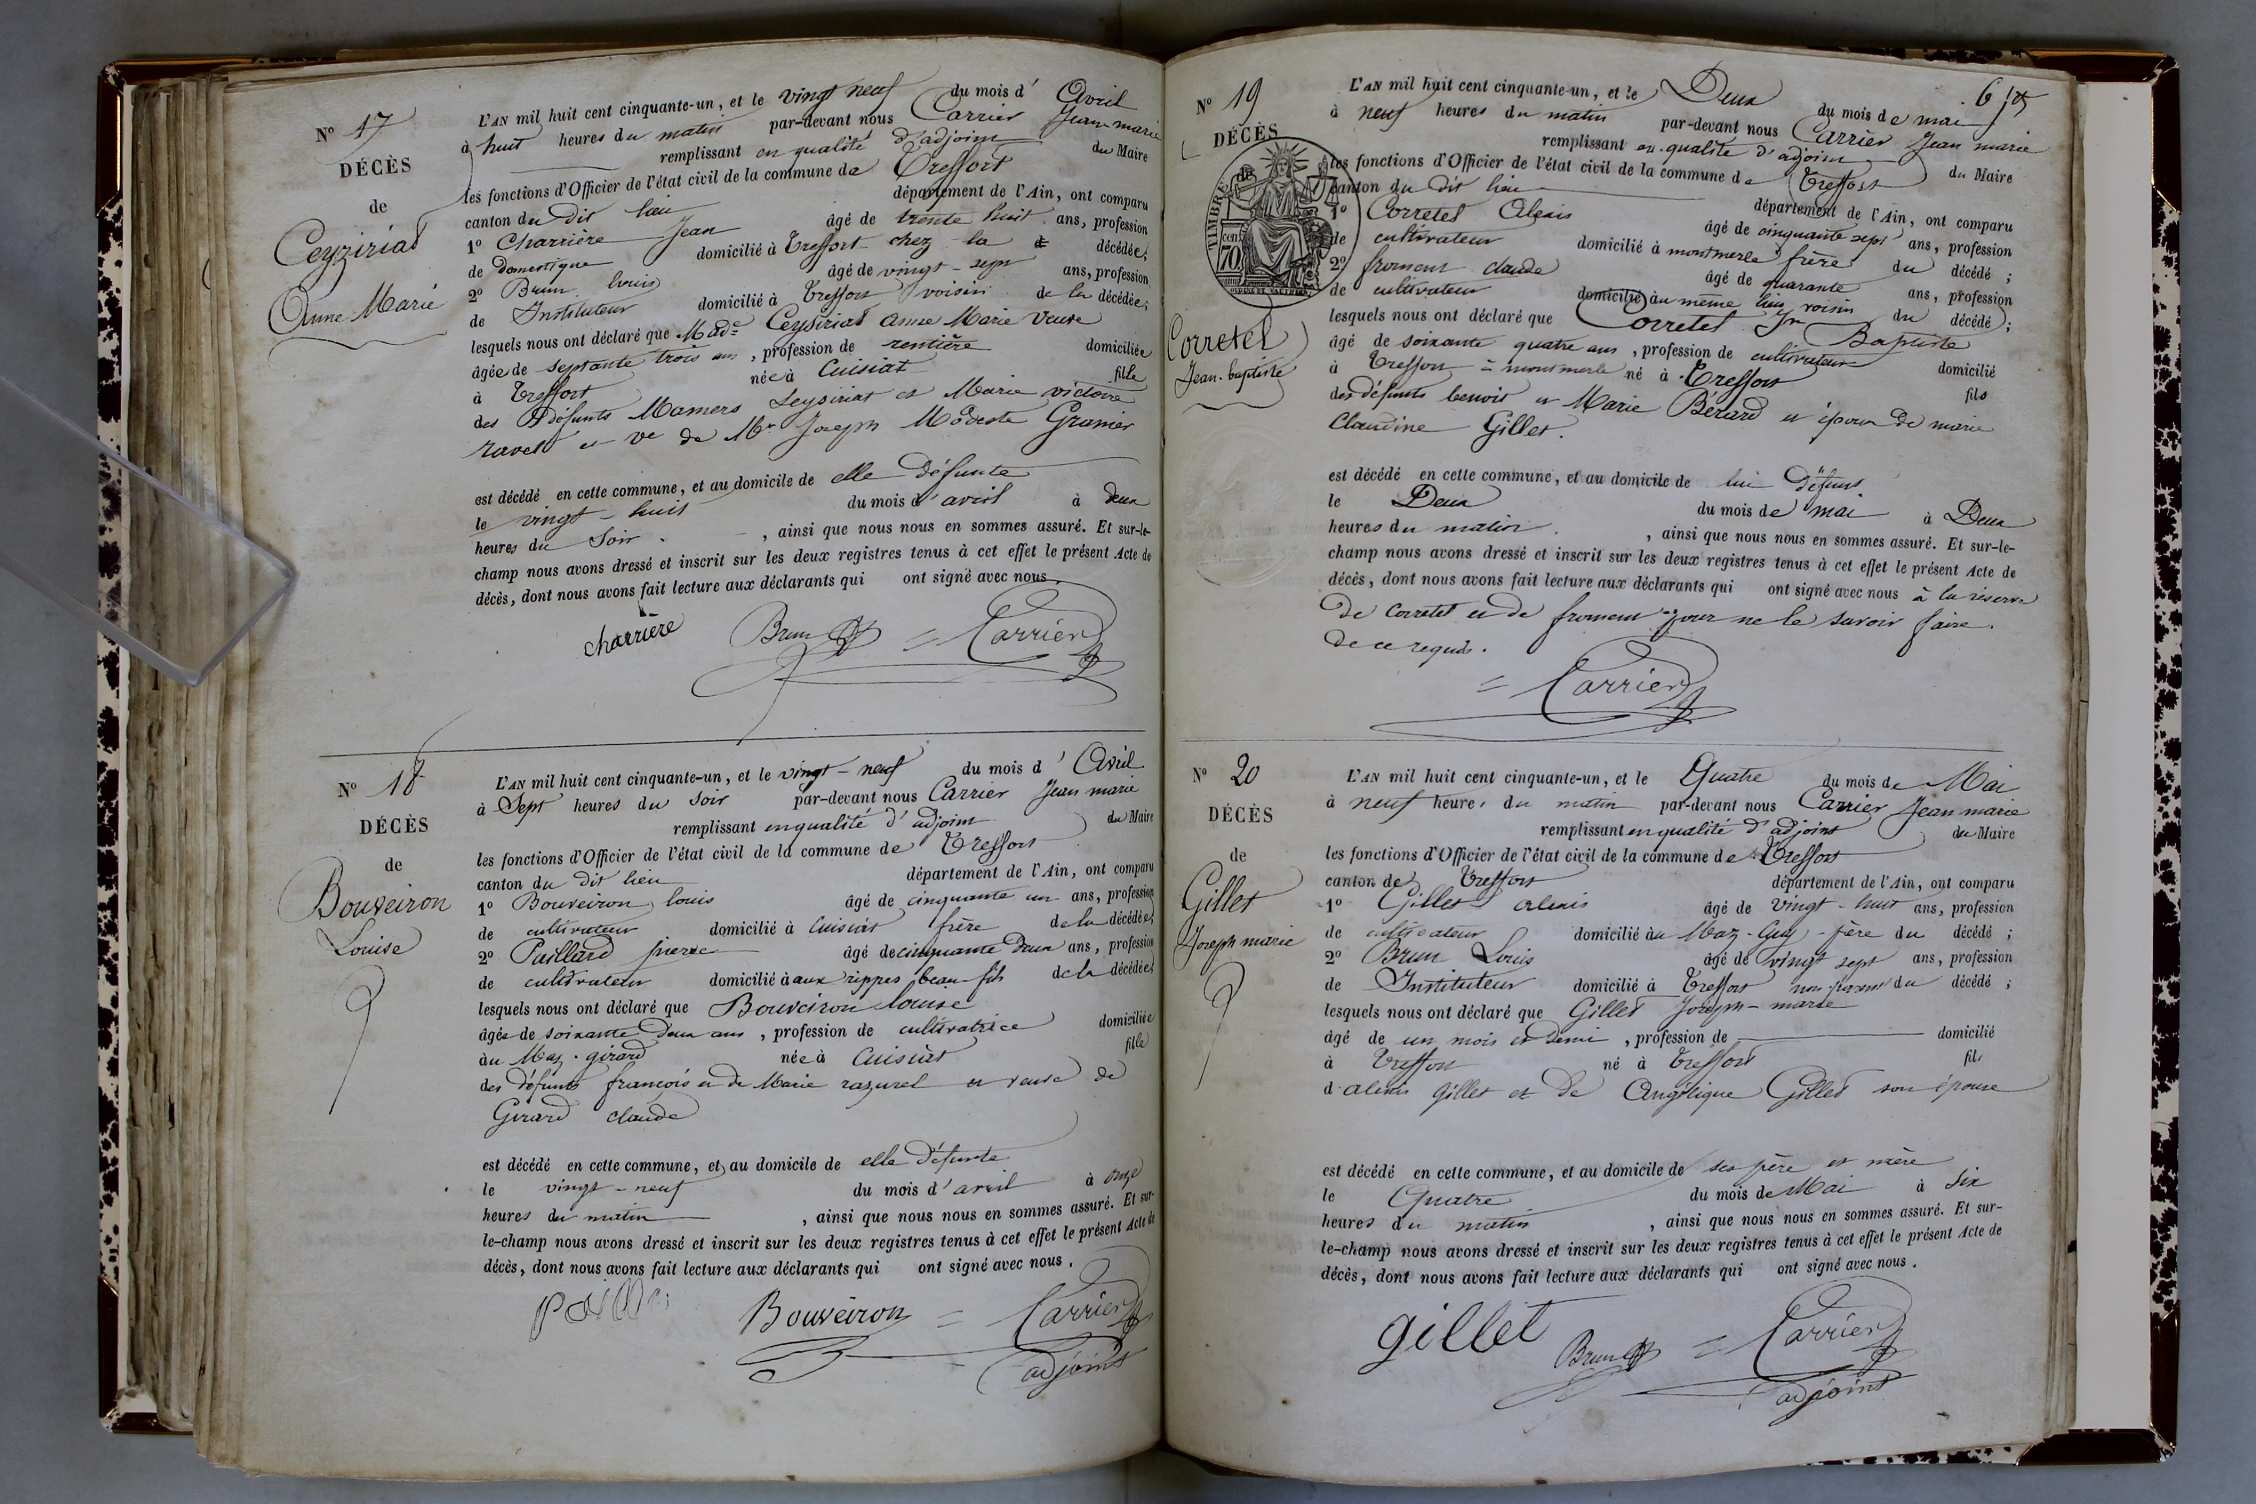 N° 17
DÉCÈS
de
Ceyziriat
Anne Marie
L'AN mil huit cent cinquante-un, et le vingt neuf du mois d' Avril
à huit heures du matin par-devant nous Carrier Jean marie
remplissant en qualité d'adjoint du Maire
les fonctions d'Officier de l'état civil de la commune de Treffort
canton du dit lieu département de l'Ain, ont comparu
1° Charrière Jean âgé de trente huit ans, profession
de domestique domicilié à Treffort chez la décédée;
2° Brun louis âgé de vingt-sept ans, profession
de Instituteur domicilié à Treffort voisin de la décédée;
lesquels nous ont déclaré que Made Ceyziriat anne Marie Veuve
âgée de septante trois ans, profession de rentière domiciliée
à Treffort née à Cuisiat fille
des défunts Mamers Ceyziriat et Marie victoire
ravet et ve de Mr Joseph Modeste Granier
est décédé en cette commune, et au domicile de elle défunte
le vingt-huit du mois d'avril à deux
heures du Soir. , ainsi que nous nous en sommes assuré. Et sur-le-
champ nous avons dressé et inscrit sur les deux registres tenus à cet effet le présent Acte de
décès, dont nous avons fait lecture aux déclarants qui ont signé avec nous.
charrière Brun = Carrier
N° 18
DÉCÈS
de
Bouveiron
Louise
L'AN mil huit cent cinquante-un, et le vingt-neuf du mois d' Avril
à Sept heures du soir par-devant nous Carrier Jean marie
remplissant en qualité d'adjoint du Maire
les fonctions d'Officier de l'état civil de la commune de Treffort
canton du dit lieu département de l'Ain, ont comparu
1° Bouveiron louis âgé de cinquante un ans, profession
de cultivateur domicilié à Cuisiat frère de la décédée;
2° Paillard pierre âgé de cinquante deux ans, profession
de cultivateur domicilié à aux rippes beau-fils de la décédée;
lesquels nous ont déclaré que Bouveiron louise
âgée de soixante deux ans, profession de cultivatrice domiciliée
au Maz. girard née à Cuisiat fille
des défunts francois et de Marie razurel et veuve de
Girard claude
est décédé en cette commune, et au domicile de elle défunte
le vingt-neuf du mois d'avril à onze
heures du matin , ainsi que nous nous en sommes assuré. Et sur-
le-champ nous avons dressé et inscrit sur les deux registres tenus à cet effet le présent Acte de
décès, dont nous avons fait lecture aux déclarants qui ont signé avec nous.
Bouveiron = Carrier
adjoint
6
N° 19
DÉCÈS
TIMBRE
cen 70
Corretel
Jean-baptiste
L'AN mil huit cent cinquante-un, et le Deux du mois de mai
à neuf heures du matin par-devant nous Carrier Jean marie
remplissant en qualité d'adjoint du Maire
les fonctions d'Officier de l'état civil de la commune de Treffort
canton du dit lieu département de l'Ain, ont comparu
1° Corretel Alexis âgé de cinquante sept ans, profession
de cultivateur domicilié à montmerle frère du décédé;
2° froment claude âgé de quarante ans, profession
de cultivateur domicilié au même lieu voisin du décédé;
lesquels nous ont déclaré que Corretel Jn Baptiste
âgé de soixante quatre ans, profession de cultivateur domicilié
à Treffort à montmerle né à Treffort fils
des défunts benoit et Marie Bérard et époux de marie
Claudine Gillet.
est décédé en cette commune, et au domicile de lui défunt.
le Deux du mois de mai à Deux
heures du matin. , ainsi que nous nous en sommes assuré. Et sur-le-
champ nous avons dressé et inscrit sur les deux registres tenus à cet effet le présent Acte de
décès, dont nous avons fait lecture aux déclarants qui ont signé avec nous à la réserve
de Corretel et de froment pour ne le savoir faire.
de ce requis.
= Carrier
N° 20
DÉCÈS
de
Gillet
Joseph marie
L'AN mil huit cent cinquante-un, et le Quatre du mois de Mai
à neuf heures du matin par-devant nous Carrier Jean marie
remplissant en qualité d'adjoint du Maire
les fonctions d'Officier de l'état civil de la commune de Treffort
canton de Treffort département de l'Ain, ont comparu
1° Gillet alexis âgé de vingt-huit ans, profession
de cultivateur domicilié au Maz-Guy-père du décédé;
2° Brun Louis âgé de vingt sept ans, profession
de Instituteur domicilié à Treffort non parent du décédé;
lesquels nous ont déclaré que Gillet Joseph-marie
âgé de un mois et demi, profession de domicilié
à Treffort né à Treffort fils
d'alexis Gillet et de Angélique Gillet son épouse
est décédé en cette commune, et au domicile de ses père et mère
le Quatre du mois de Mai à Six
heures du matin , ainsi que nous nous en sommes assuré. Et sur-
le-champ nous avons dressé et inscrit sur les deux registres tenus à cet effet le présent Acte de
décès, dont nous avons fait lecture aux déclarants qui ont signé avec nous.
gillet Brun = Carrier
adjoint